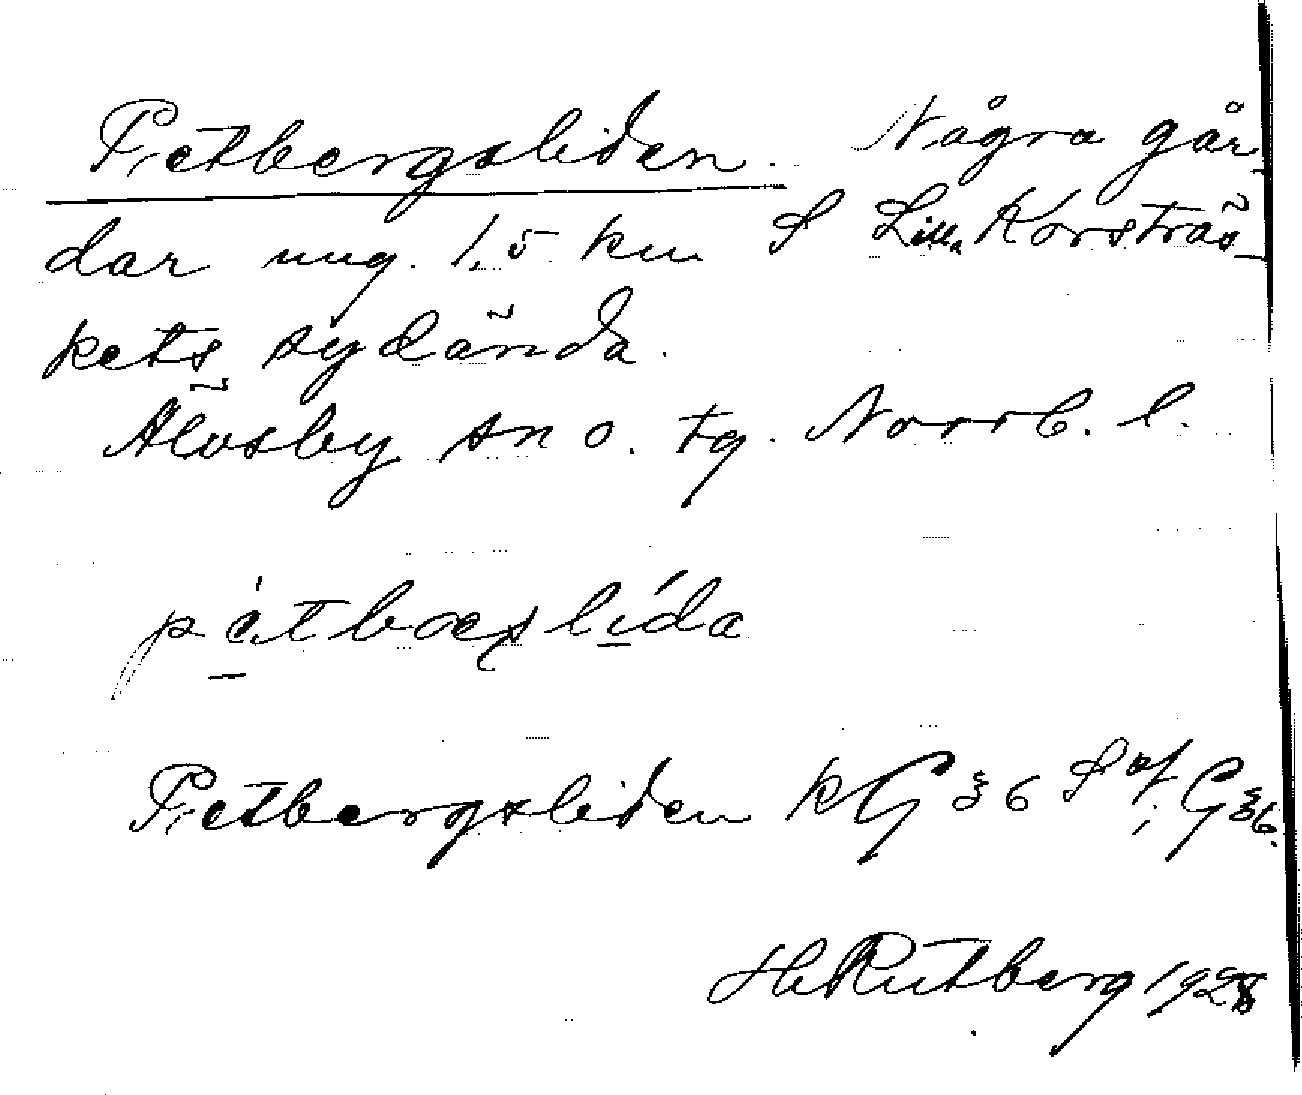 Pietbergsliden. Några går-
dar ung. 1,5 km S Lilla Korsträs-
kets sydända.
Älvsby sn o. tg. Norrb. l.
Pietbergsliden kG 36 S of G 36.
H Rutberg 1928